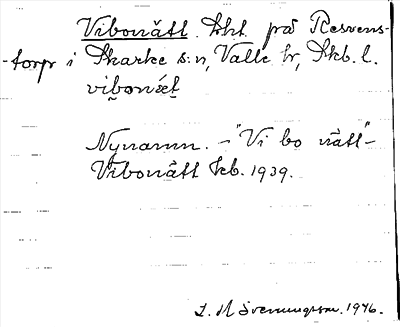 Vibonätt. lht. på Resvens-
-torp i Skarke s:n, Valle hr, Skb. l.
vibonǽt
Nynamn. - "Vi bo nätt" -
Vibonätt kb. 1939.
L. M Svenungsson. 1946.